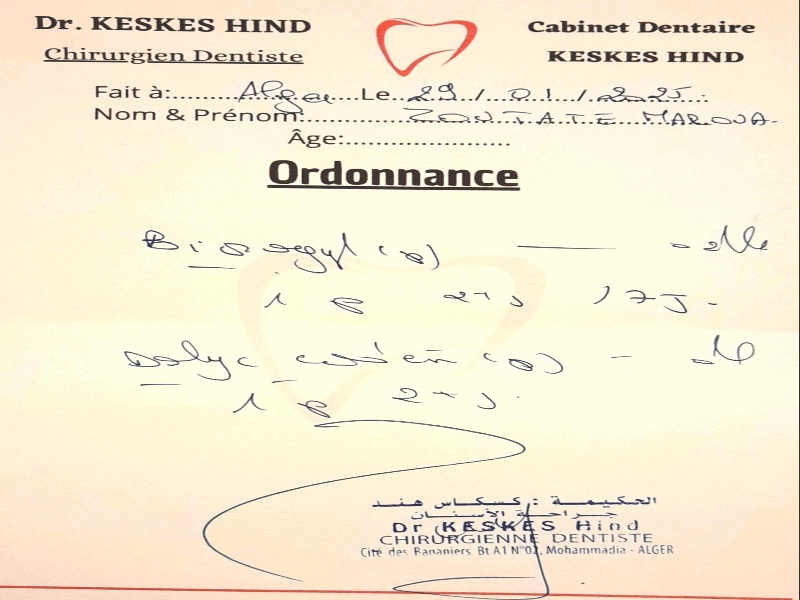 Dr. KESKES HIND
Chirurgien Dentiste
Cabinet Dentaire
KESKES HIND
Fait à:......Alger......Le..29../..01../..2025..
Nom & Prénom:..............ZONTATE MAROUA.
Âge:......................
Ordonnance
Birogyl (p) —
1 p 2+J / 7J.
Dolyc codein (p) -
1 p 2+J.
الحكيمة : كسكاس هند
جراحة الأسنان
Dr KESKES Hind
CHIRURGIENNE DENTISTE
Cité des Bananiers. Bt A1 N°02, Mohammadia - ALGER